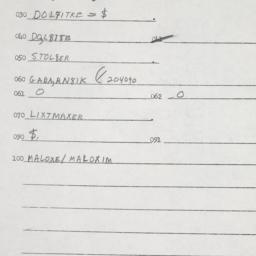 030 DOLBITRE = $
040 DOLBITE
050 STOLBER
060 GARMANSIK ( 204090
061 0 062 0
070 LIXTMAXER
090 $. 091
100 MALOXE/MALOXIM